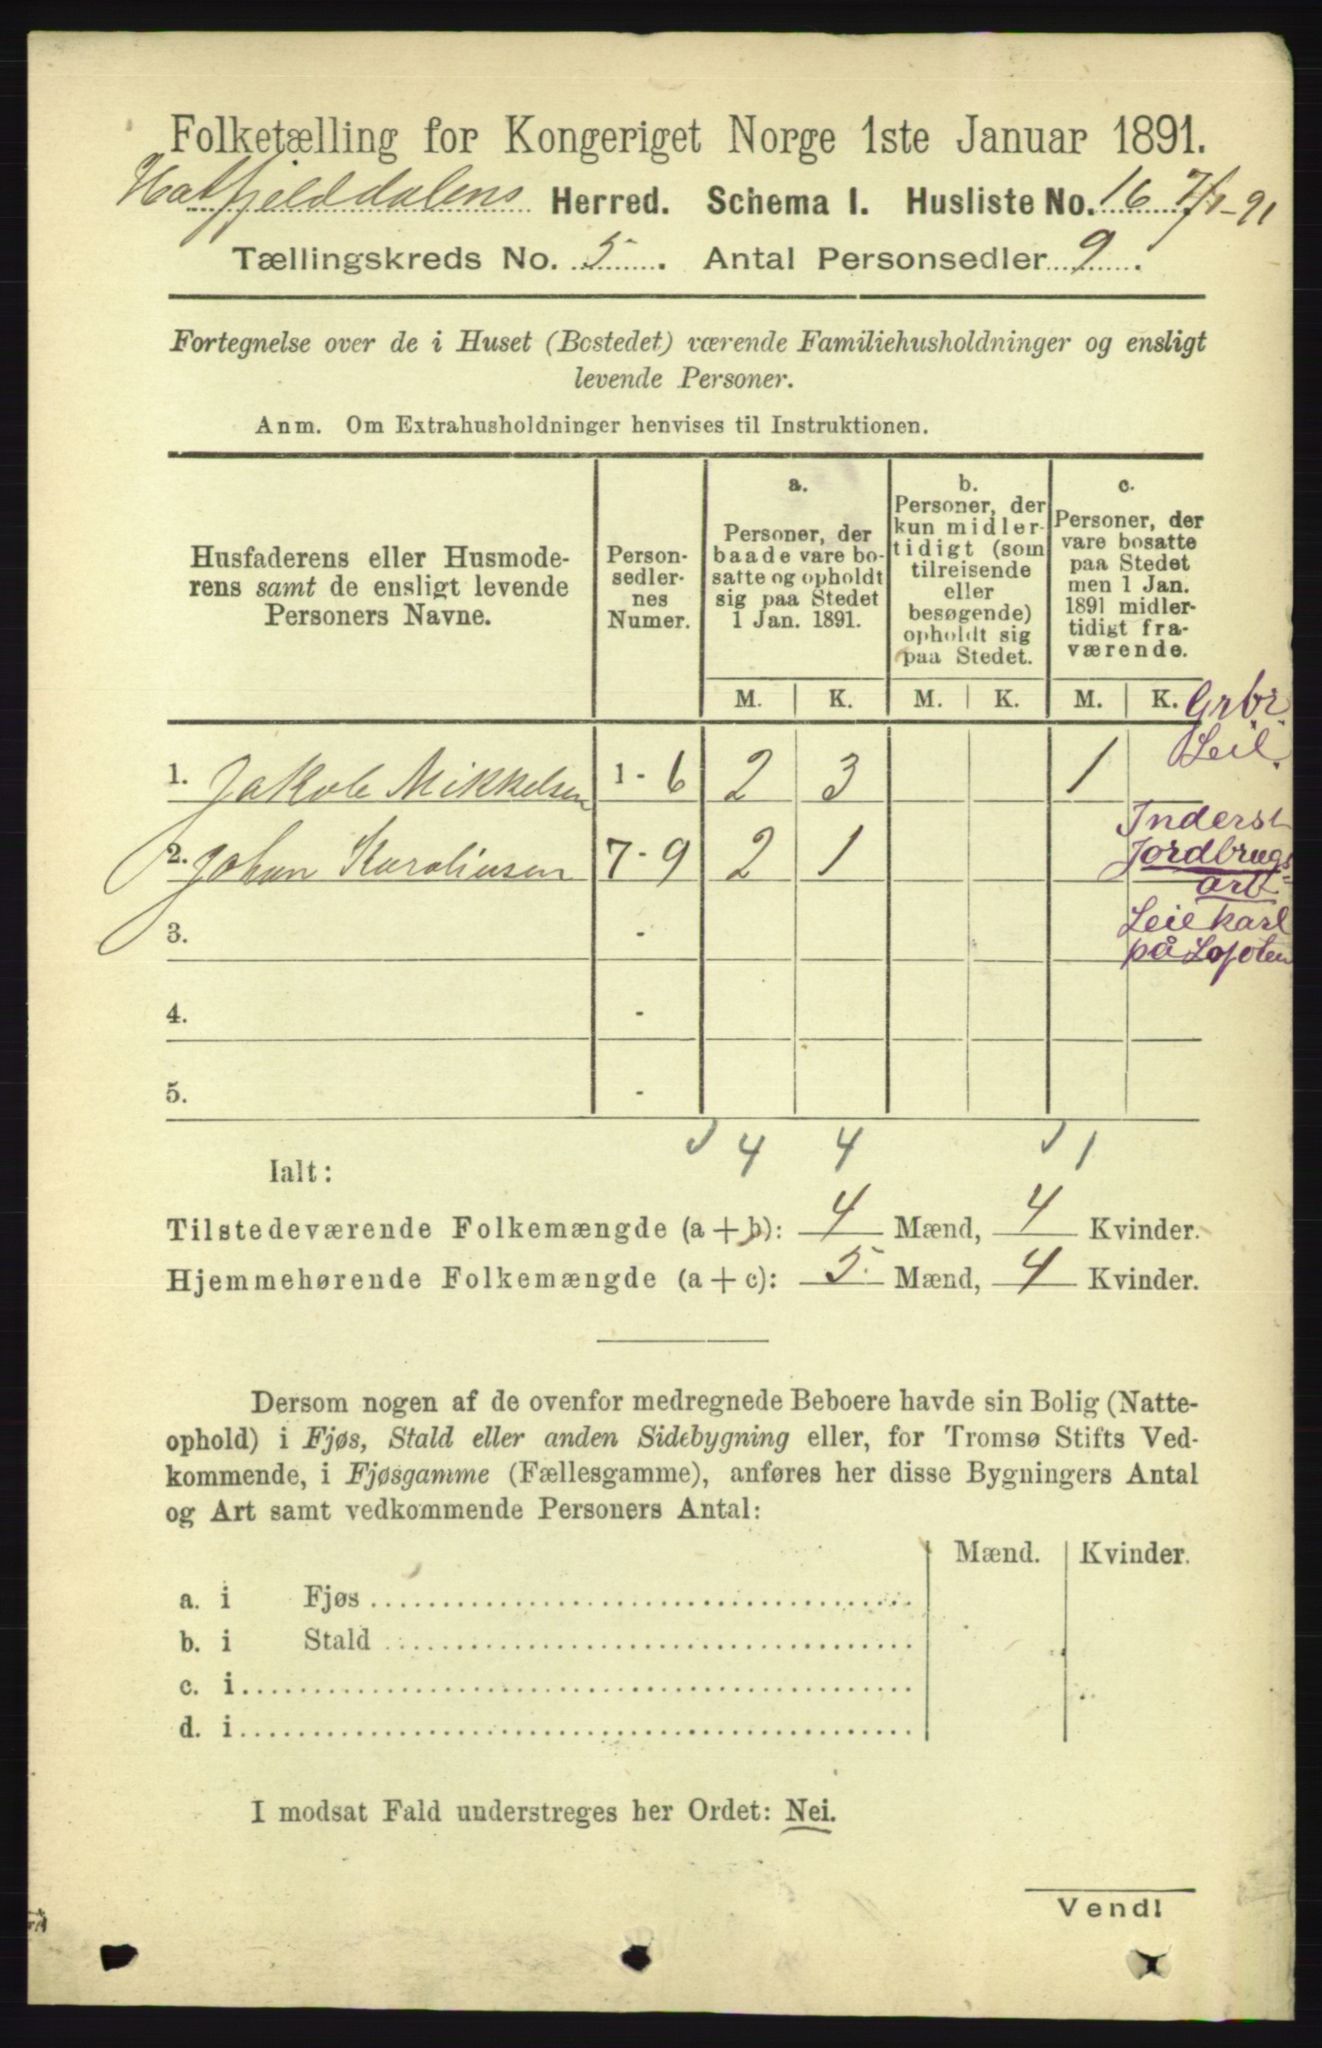 Folketælling for Kongeriget Norge 1ste Januar 1891.
Hatfjelddalens Herred. Schema I. Husliste No. 16 7/1-91
Tællingskreds No. 5. Antal Personsedler 9.
Fortegnelse over de i Huset (Bostedet) værende Familiehusholdninger og ensligt
levende Personer.
Anm. Om Extrahusholdninger henvises til Instruktionen.
Husfaderens eller Husmode-
rens samt de ensligt levende
Personers Navne.
Person-
sedler-
nes
Numer.
a.
Personer, der
baade vare bo-
satte og opholdt
sig paa Stedet
1 Jan. 1891.
b.
Personer, der
kun midler-
tidigt (som
tilreisende
eller
besøgende)
opholdt sig
paa Stedet.
c.
Personer, der
vare bosatte
paa Stedet
men 1 Jan.
1891 midler-
tidigt fra-
værende.
M. K. M. K. M. K.
Grbr.
Leil.
1. Jakob Mikkelsen 1 - 6 2 3 1
Inderst
2. Johan Karoliusen 7 - 9 2 1
Jordbrugs-
arb.
Leiekarl
på Lofoten
3. -
4. -
5. -
4 4 1
Ialt:
Tilstedeværende Folkemængde (a + b): 4 Mænd, 4 Kvinder.
Hjemmehørende Folkemængde (a + c): 5 Mænd, 4 Kvinder.
Dersom nogen af de ovenfor medregnede Beboere havde sin Bolig (Natte-
ophold) i Fjøs, Stald eller anden Sidebygning eller, for Tromsø Stifts Ved-
kommende, i Fjøsgamme (Fællesgamme), anføres her disse Bygningers Antal
og Art samt vedkommende Personers Antal:
Mænd. Kvinder.
a. i Fjøs
b. i Stald
c. i
d. i
I modsat Fald understreges her Ordet: Nei.
Vend!